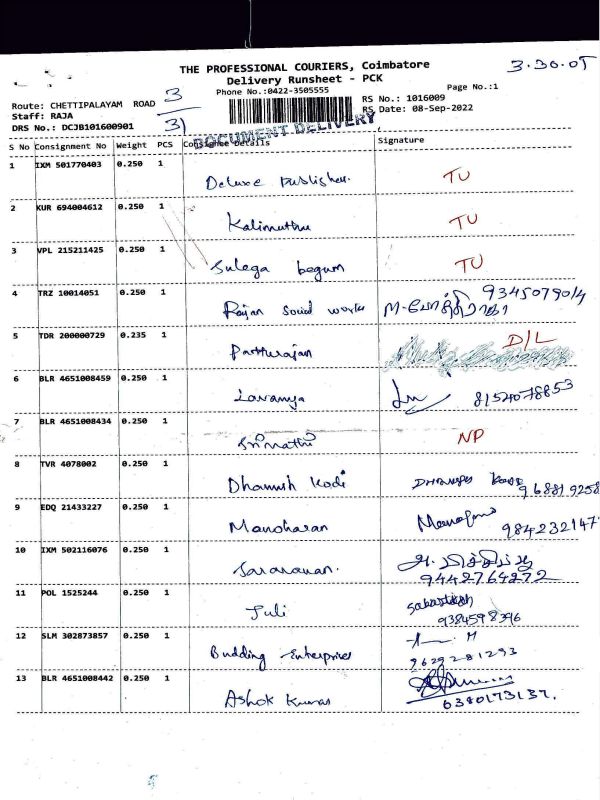 THE PROFESSIONAL COURIERS, Coimbatore
3-30.05
Delivery Runsheet - PCK
Phone No.:0422-3505555
Page No.:1
Route: CHETTIPALAYAM ROAD
3
RS No.: 1016009
Staff: RAJA
RS Date: 08-Sep-2022
DRS No.: DCJB101600901
31
DOCUMENT DELIVERY
S No Consignment No Weight PCS Consignee Details Signature
1 IXM 501770403 0.250 1
Deluxe Publisher. TU
2 KUR 694004612 0.250 1
Kalimuthu TU
3 VPL 215211425 0.250 1
Sulega begum TU
4 TRZ 10014051 0.250 1
9345079014
Rajan Sound works
5 TDR 200000729 0.235 1
D/L
Patturajan
6 BLR 4651008459 0.250 1
Lavanya 8152078853
7 BLR 4651008434 0.250 1
Srimathi NP
8 TVR 4078002 0.250 1
Dhanush Kodi
968819258
9 EDQ 21433227 0.250 1
Manoharan
984232147
10 IXM 502116076 0.250 1
Saravanan.
9442764272
11 POL 1525244 0.250 1
Juli
9384598396
12 SLM 302873857 0.250 1
M
Budding Enterprises 9629281293
13 BLR 4651008442 0.250 1
Ashok Kumar 6380173137.